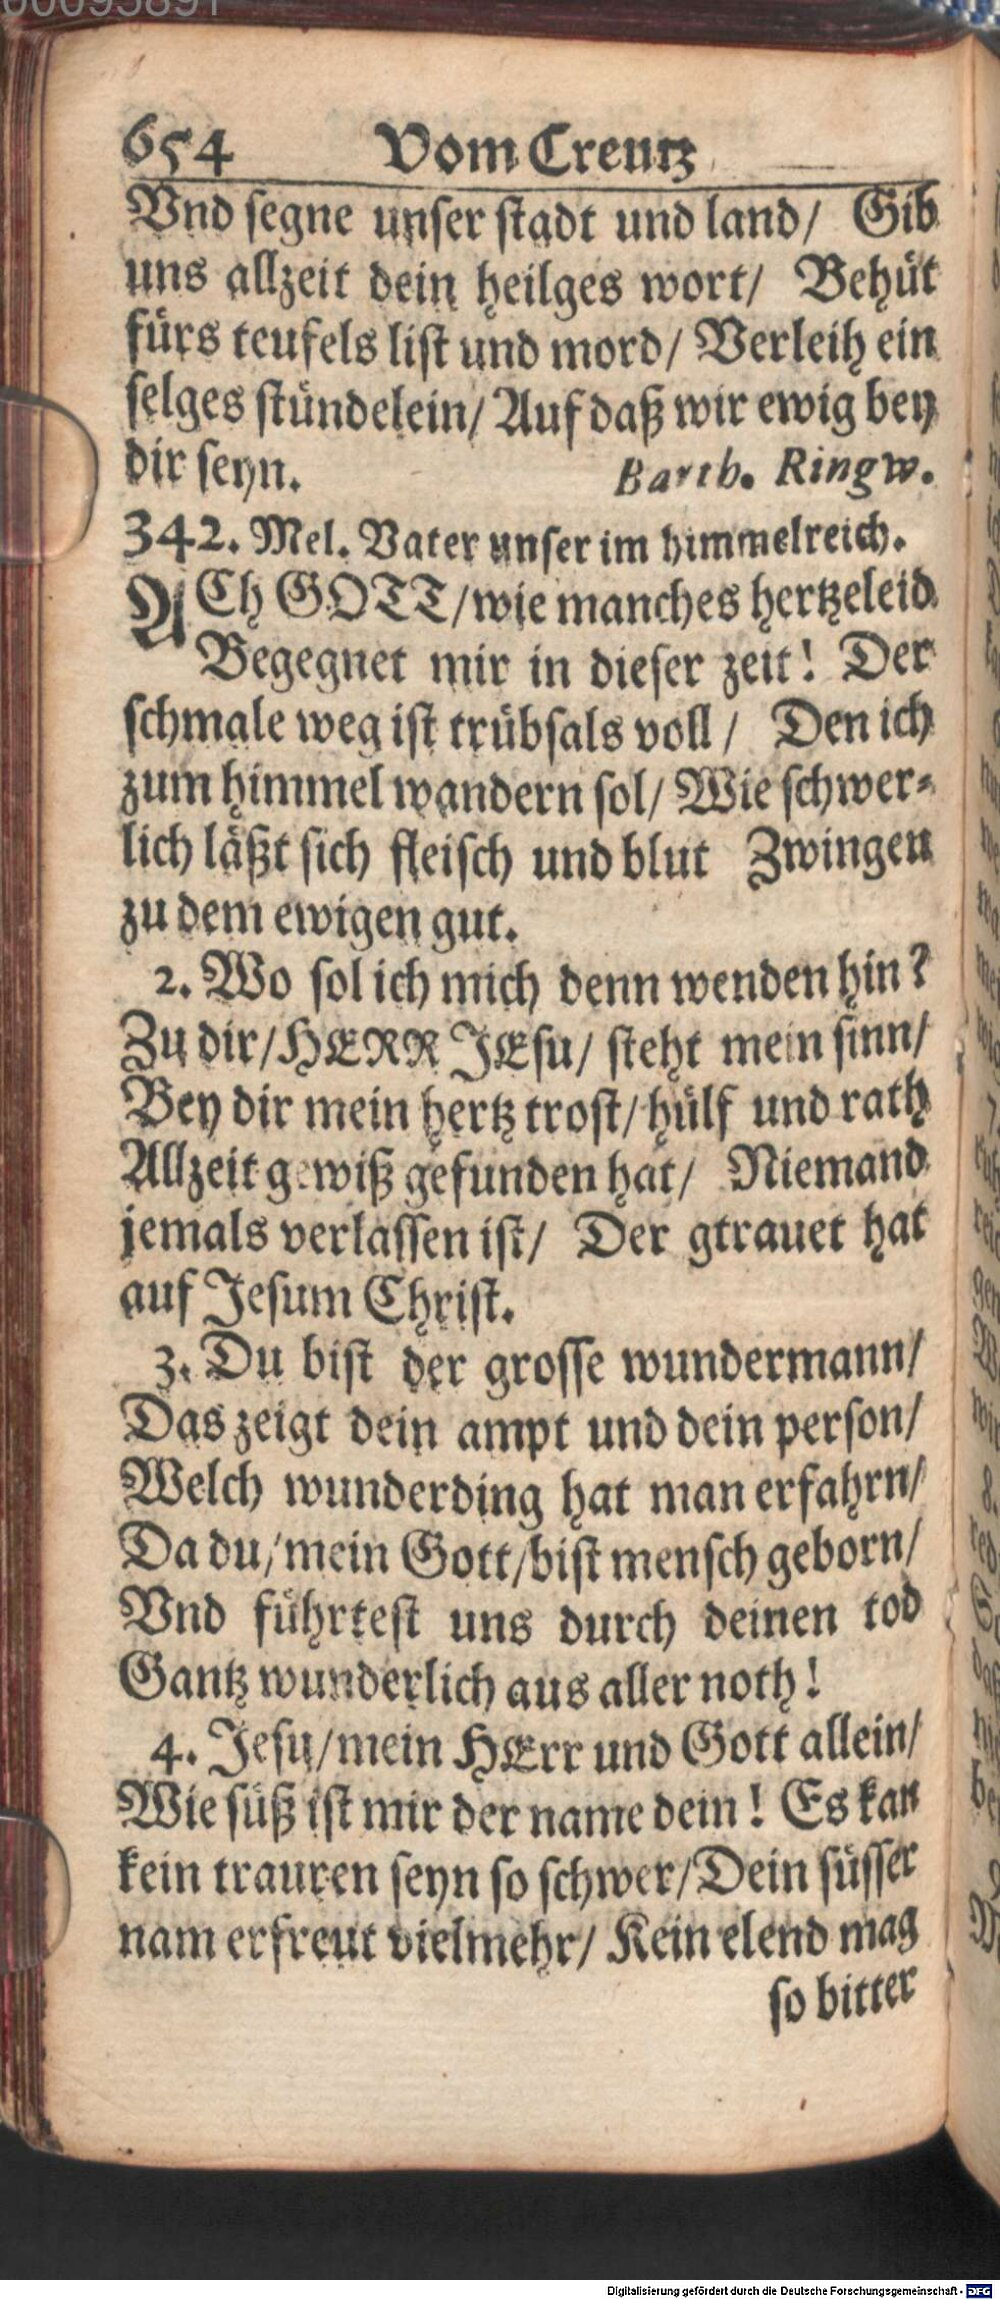 00095891
654 Vom Creutz
Vnd segne unser stadt und land/ Gib
uns allzeit dein heilges wort/ Behüt
fürs teufels list und mord/ Verleih ein
selges stündelein/ Auf daß wir ewig bey
dir seyn. Barth. Ringw.
342. Mel. Vater unser im himmelreich.
ACh GOTT/wie manches hertzeleid
Begegnet mir in dieser zeit! Der
schmale weg ist trübsals voll/ Den ich
zum himmel wandern sol/ Wie schwer-
lich läßt sich fleisch und blut Zwingen
zu dem ewigen gut.
2. Wo sol ich mich denn wenden hin?
Zu dir/HERR JEsu/ steht mein sinn/
Bey dir mein hertz trost/hülf und rath
Allzeit gewiß gefunden hat/ Niemand
jemals verlassen ist/ Der gtrauet hat
auf Jesum Christ.
3. Du bist der grosse wundermann/
Das zeigt dein ampt und dein person/
Welch wunderding hat man erfahrn/
Da du/mein Gott/bist mensch geborn/
Vnd führtest uns durch deinen tod
Gantz wunderlich aus aller noth!
4. Jesu/mein HErr und Gott allein/
Wie süß ist mir der name dein! Es kan
kein trauren seyn so schwer/Dein süsser
nam erfreut vielmehr/ Kein elend mag
so bitter
Digitalisierung gefördert durch die Deutsche Forschungsgemeinschaft - DFG